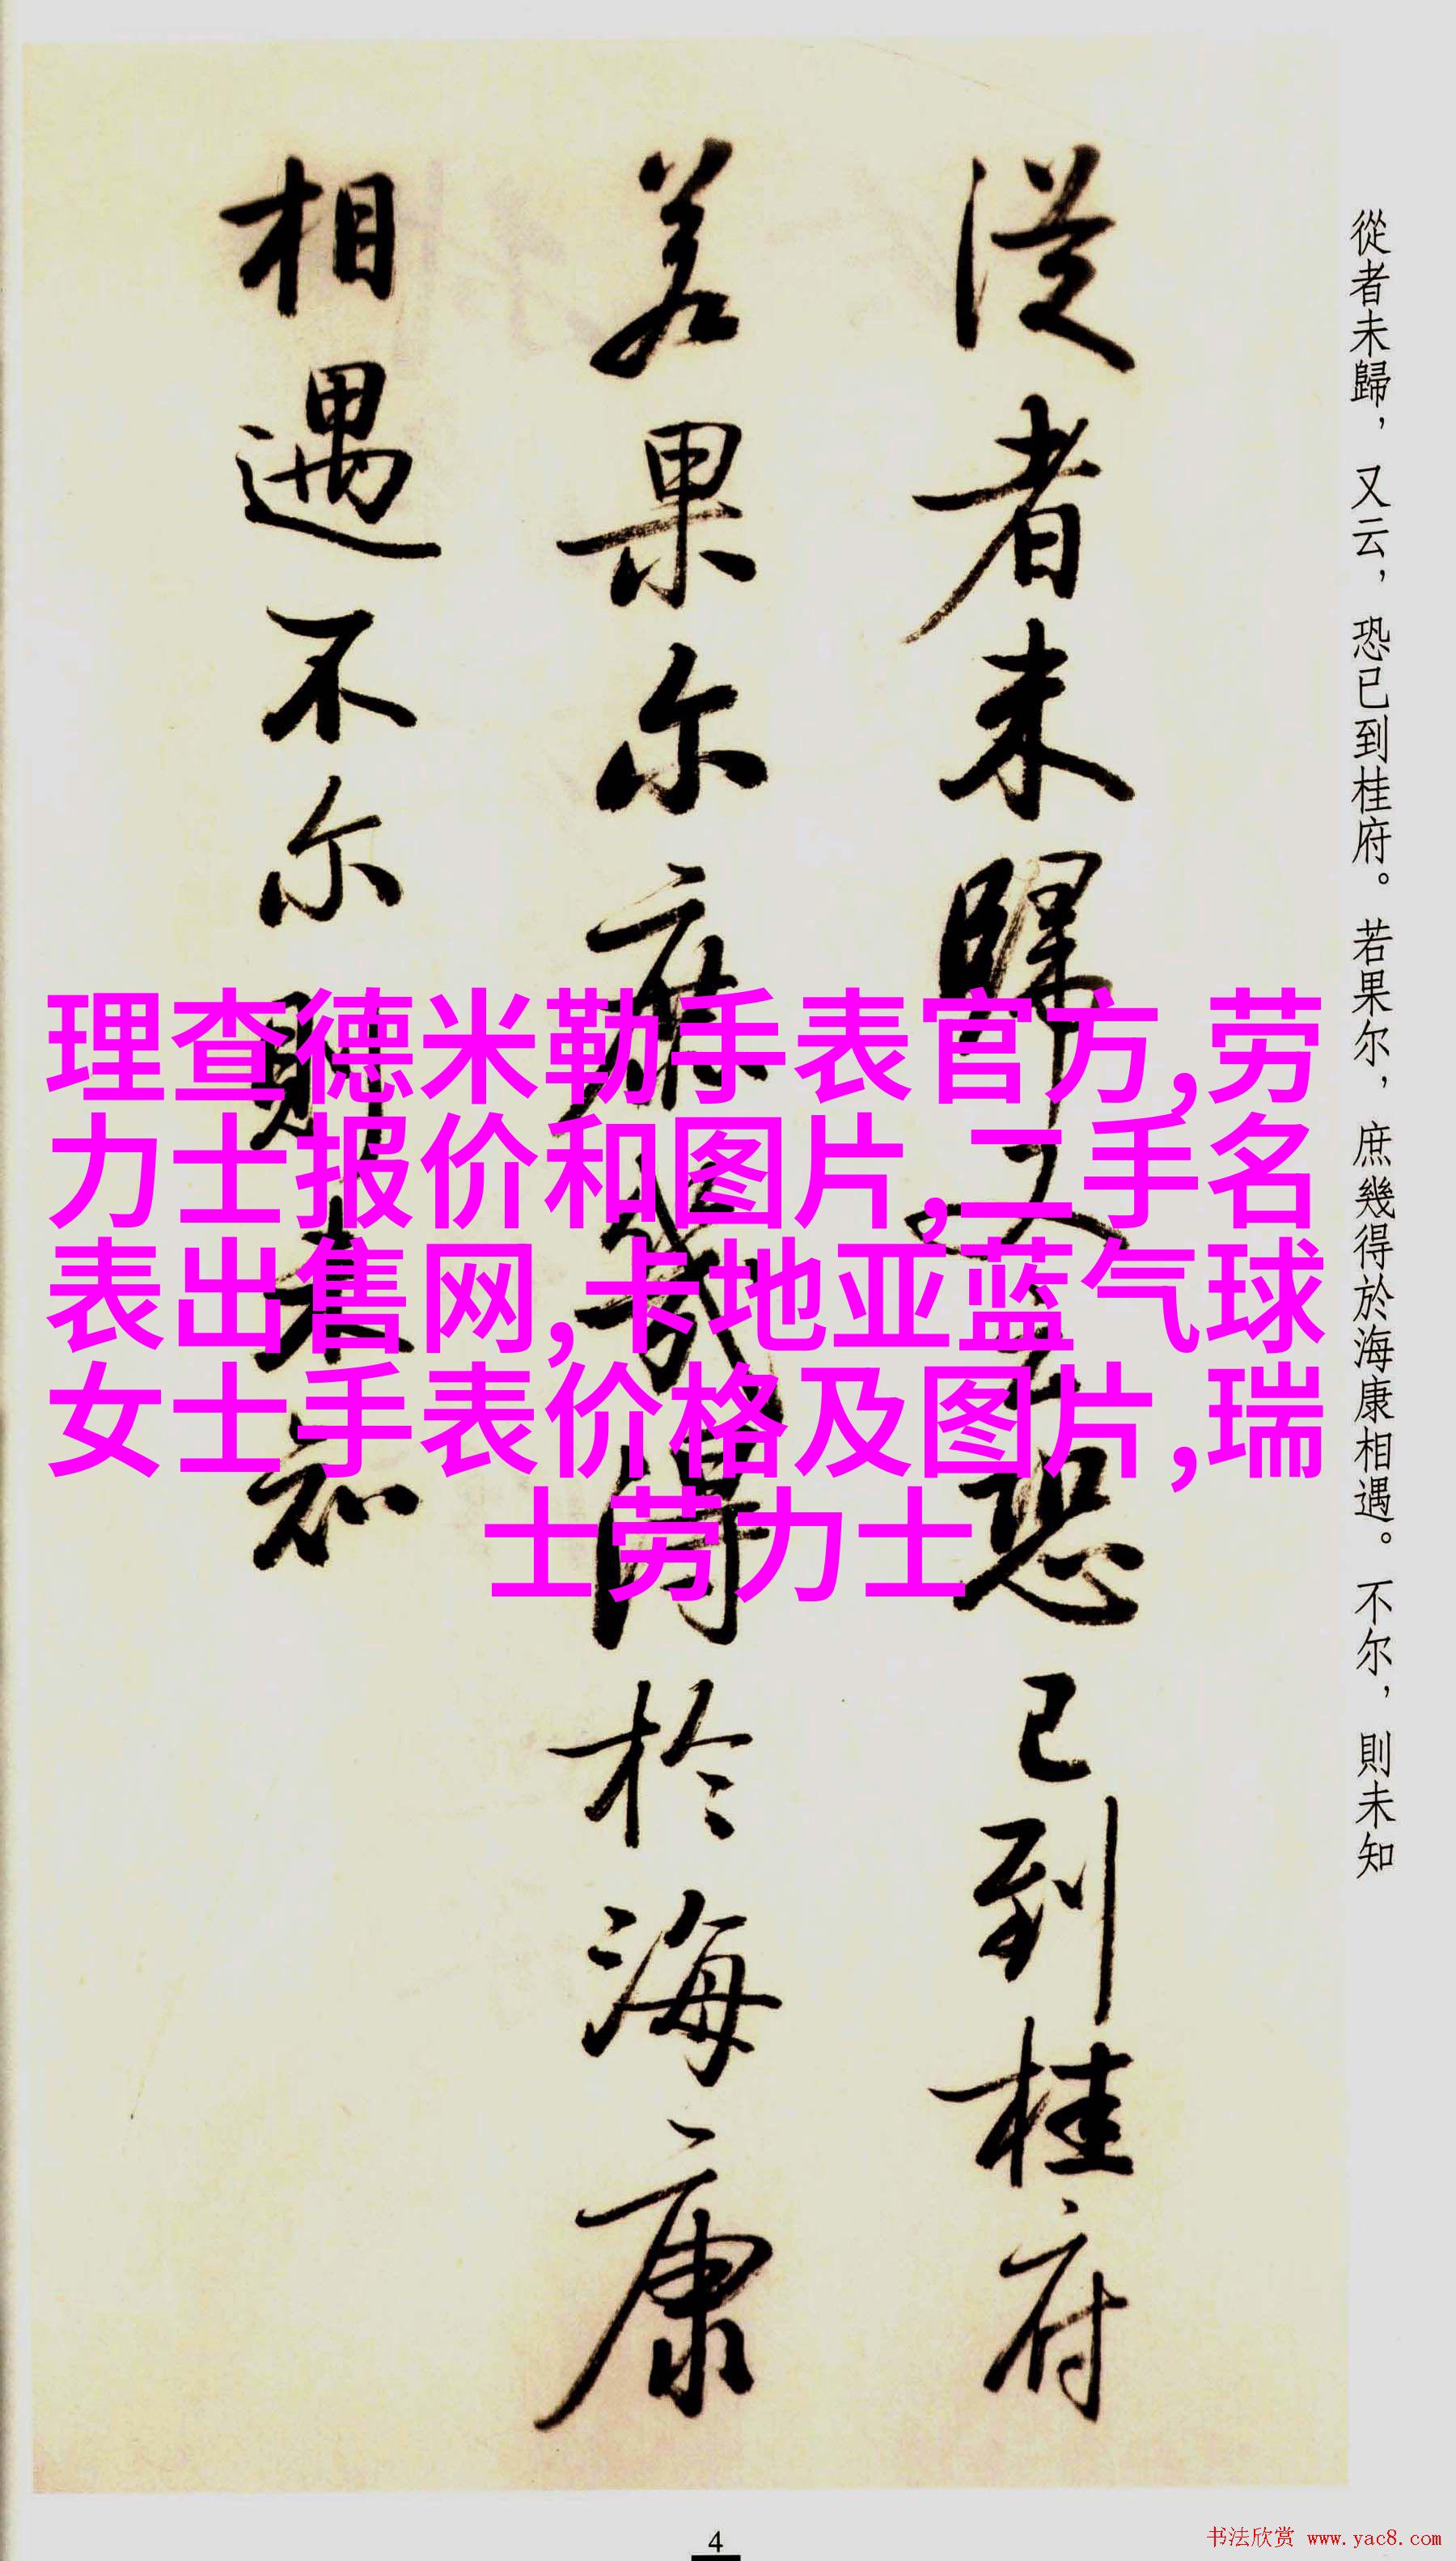 從者未歸，又云，恐已到桂府。若果尔，庶幾得於海康相遇。不尔，則未知
从者未歸又云恐已到桂府
若果尔庶幾得於海康
相遇不尔則未知
理查德米勒手表官方,劳
力士报价和图片,二手名
表出售网,卡地亚蓝气球
女士手表价格及图片,瑞
士劳力士
4
书法欣赏 www.yac8.com